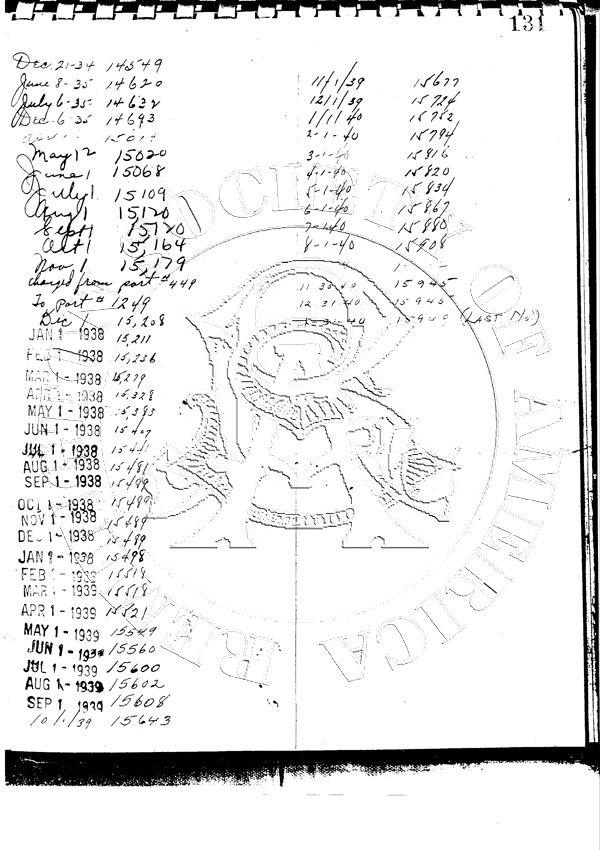 131
Dec. 21-34 14549
June 8-35 14620
July 6-35 14632
Dec 6 35 14693
May 12 15020
June 1 15068
July 1 15109
Aug 1 15120
Sept 1 15120
Oct 1 15,164
Nov 1 15,179
changed from part # 449
To part # 1249
Dec 1 15,208
JAN 1 - 1938 15,211
FEB 1 - 1938 15,236
MAR 1 - 1938 15,279
APR 1 - 1938 15,328
MAY 1 - 1938 15,385
JUN 1 - 1938 15407
JUL 1 - 1938 15441
AUG 1 - 1938 15481
SEP 1 - 1938 15499
OCT 1 - 1938 15489
NOV 1 - 1938 15489
DEC 1 - 1938 15489
JAN 1938 15498
FEB - 1939 15518
MAR - 1939 15518
APR 1 - 1939 15521
MAY 1 - 1939 15549
JUN 1 - 1939 15560
JUL 1 - 1939 15600
AUG 1 - 1939 15602
SEP 1 1939 15608
10/1/39 15643
11/1/39 15677
12/1/39 15724
1/1/40 15752
2-1-40 15794
3-1-40 15816
4-1-40 15820
5-1-40 15834
6-1-40 15867
7-1-40 15880
8-1-40 15908
11 30 40 15945
12 31 40 15945
1 31 40 15945 (LAST No)
SOCIETY OF AMERICA